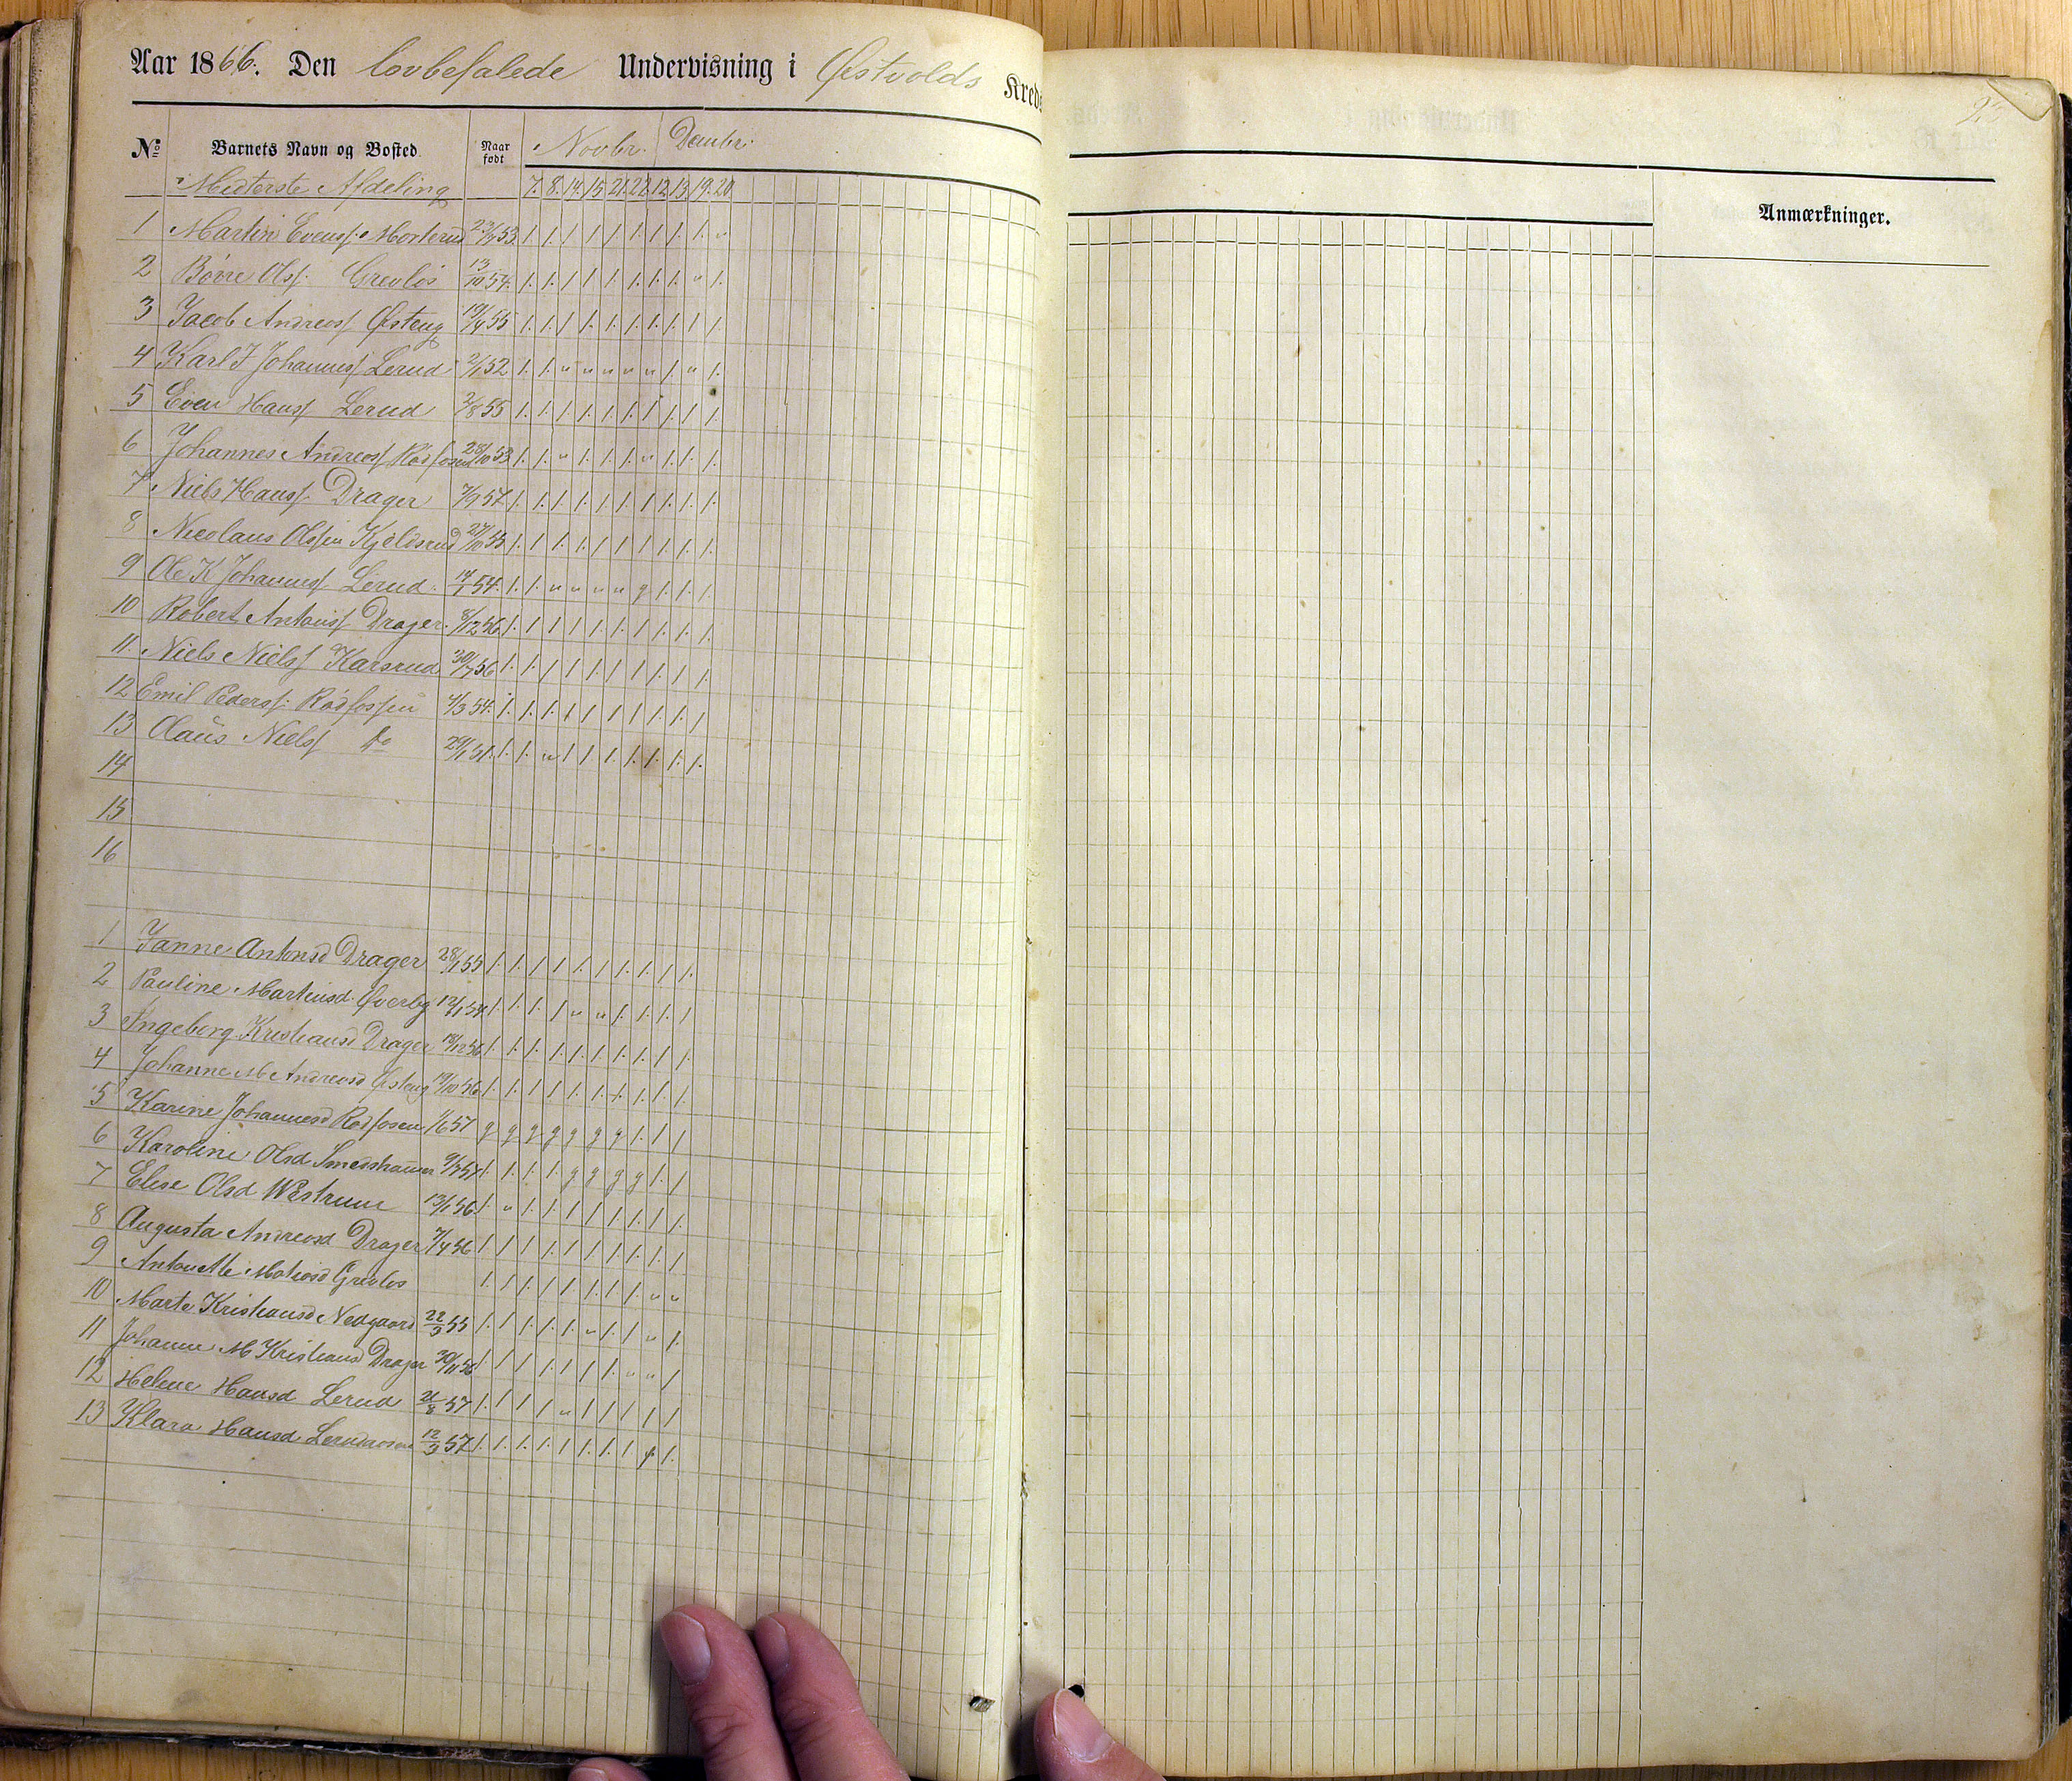 Aar 1866. Den lovbefalede Undervisning i Østvolds Kreds
No Barnets Navn og Bosted. Naar født Novbr. Decmbr.
Midterste Afdeling 7. 8. 14. 15. 21. 22. 12. 13. 19. 20
1 Martin Evens. Morterud 23/7 53. 1. 1. 1 1 1. 1. 1 1. 1. "
2 Børre Ols. Grevløs 13/10 54. 1. 1. 1 1 1. 1. 1. 1. " 1.
3 Jacob Andreas. Østeng 19/4 55 1. 1. 1 1. 1. 1. 1. 1. 1 1.
4 Karl J Johannes. Lerud 2/1 52 1. 1. " " " " " 1. " 1.
5 Even Hans. Lerud 2/8 55 1. 1. 1 1. 1. 1. 1 1. 1 1.
6 Johannes Andreas. Rødfosen 28/10 53 1. 1. " 1. 1. 1. " 1. 1. 1.
7 Niels Hans. Drager 7/9 57 1. 1. 1. 1. 1. 1. 1. 1. 1. 1.
8 Nicolaus Olssen Kjeldsrud 27/10 55 1. 1 1. 1. 1 1 1. 1. 1. 1.
9 Ole K Johannes. Lerud. 14/1 54. 1. 1. " " " " g 1. 1. 1.
10 Robert Antons. Drager. 8/12 56 1. 1 1 1 1. 1. 1 1. 1. 1.
11. Niels Niels. Karsrud 30/7 56 1. 1. 1 1 1. 1 1. 1. 1 1.
12 Emil Peders. Rødfossen 4/3 54. 1. 1. 1. 1 1 1 1 1. 1. 1
13 Olaus Niels. Do 29/1 51. 1. 1. " 1 1 1. 1. 1. 1. 1.
14
15
16
1 Janne Antonsd Drager 28/1 55 1. 1. 1 1 1. 1 1. 1. 1 1.
2 Pauline Martinsd. Øverby 12/1 54 1. 1. 1. 1 " " 1. 1. 1. 1
3 Ingeborg Kristiansd Drager 18/12 56 1. 1. 1. 1. 1. 1. 1. 1. 1 1.
4 Johanne M Andreasd Østeng 19/10 56 1. 1. 1 1 1. 1. 1. 1. 1. 1.
5 Karine Johannesd Rødfosen 1/6 57 g g g g g g g 1. 1 1
6 Karoline Olsd Smedshammer 9/7 57 1. 1. 1. 1. g g g g 1. 1
7 Elise Olsd Westrum 13/1 56 1. " 1. 1. 1 1 1. 1. 1 1.
8 Augusta Andreasd Drager 7/4 56 1 1 1 1. 1 1 1. 1. 1. 1
9 Antonette Matiasd Grevløs 1. 1 1. 1 1. 1. 1 1. " "
10 Marte Kristiansd Nedgaard 22/3 55 1. 1 1. 1. 1. " 1. 1 " 1.
11 Johanne M Kristiansd Drager 30/11 56 1 1 1 1. 1 1 1. " " 1
12 Helene Hansd Lerud 21/8 57 1. 1 1 1 " 1 1 1 1 1
13 Klara Hansd 12/3 57 1. 1. 1. 1. 1 1. 1. 1 1.
Anmærkninger.